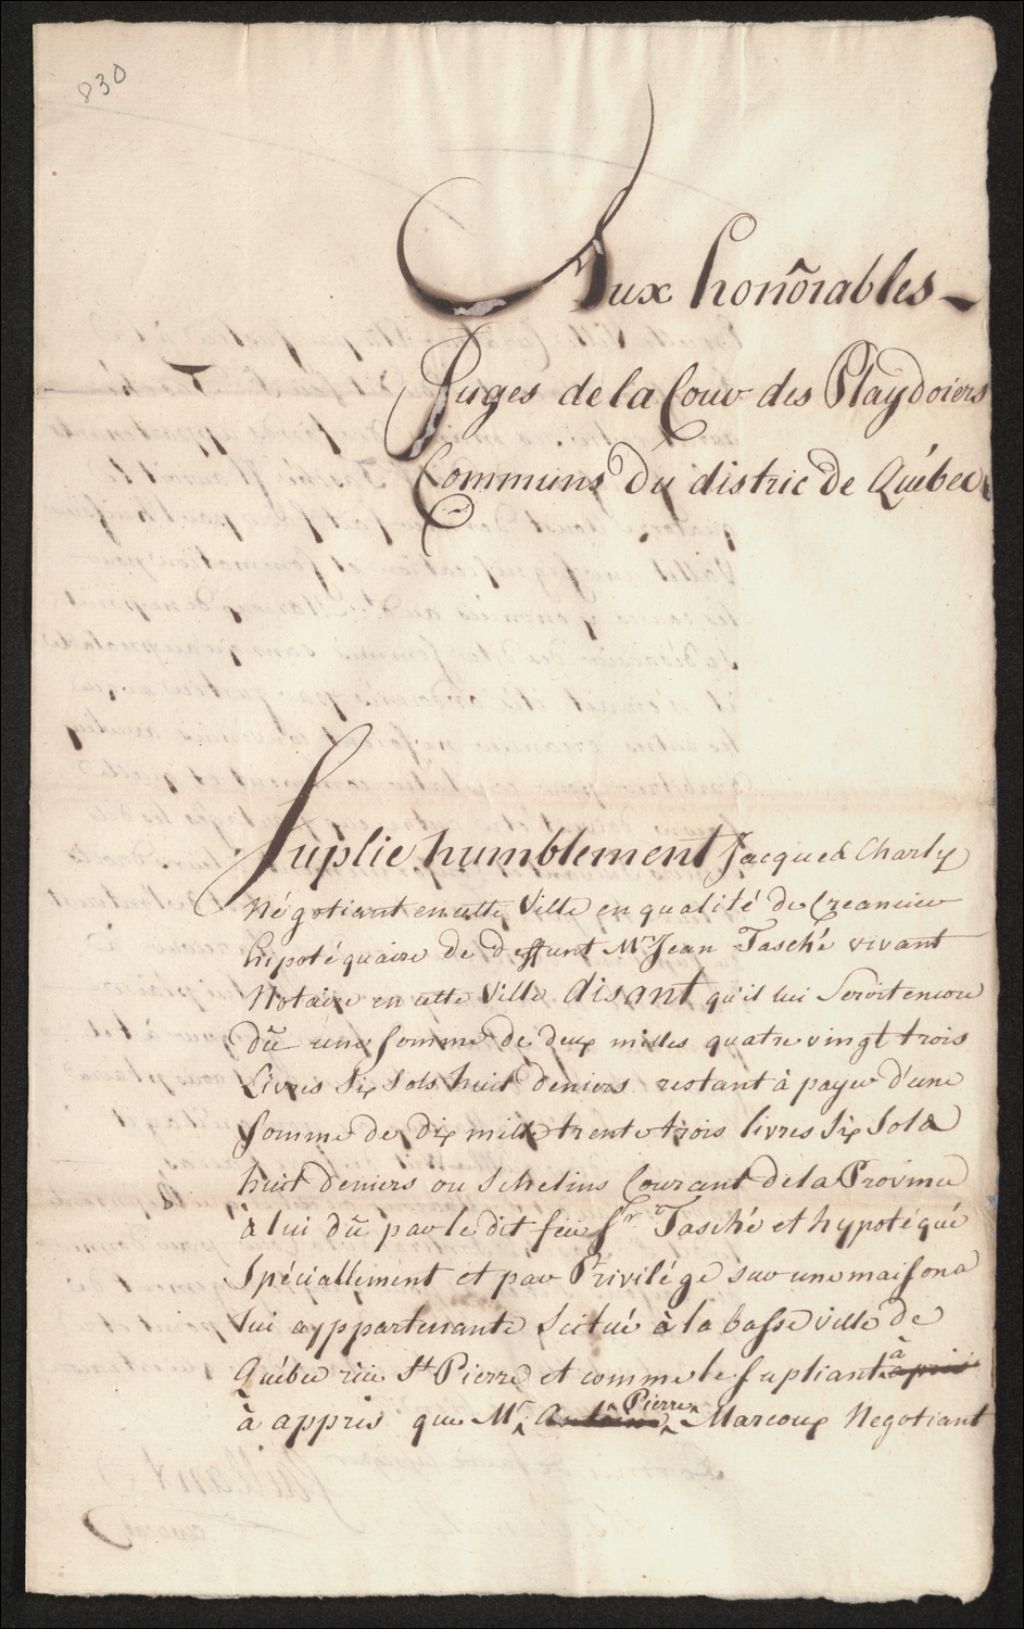 830
Aux honôrables
Juges de la Cour des Playdoiers
Communs Du district De Québec
Suplie humblement Jacques Charly
Négotiant en cette Ville en qualité de Creancier
hipotéquaire de deffunt Mr Jean Tasché vivant
Notaire en cette Ville disant qu'il lui Seroit encore
dû une Somme de deux milles quatre vingt trois
Livres Six Sols huit deniers restant à payer d'une
Somme de Dix mille trente trois livres Six Sols
huit deniers ou Schelins Courant de la Province
à lui dû par le dit feu Sr Tasché et hypotéqué
Spéciallement et par Privilége sur une maison a
lui apppartenante Scitué à la basse ville de
Québec rüe St Pierre et comme le Supliant à apris
à appris que Mr Antoine Pierre Marcoux Negotiant